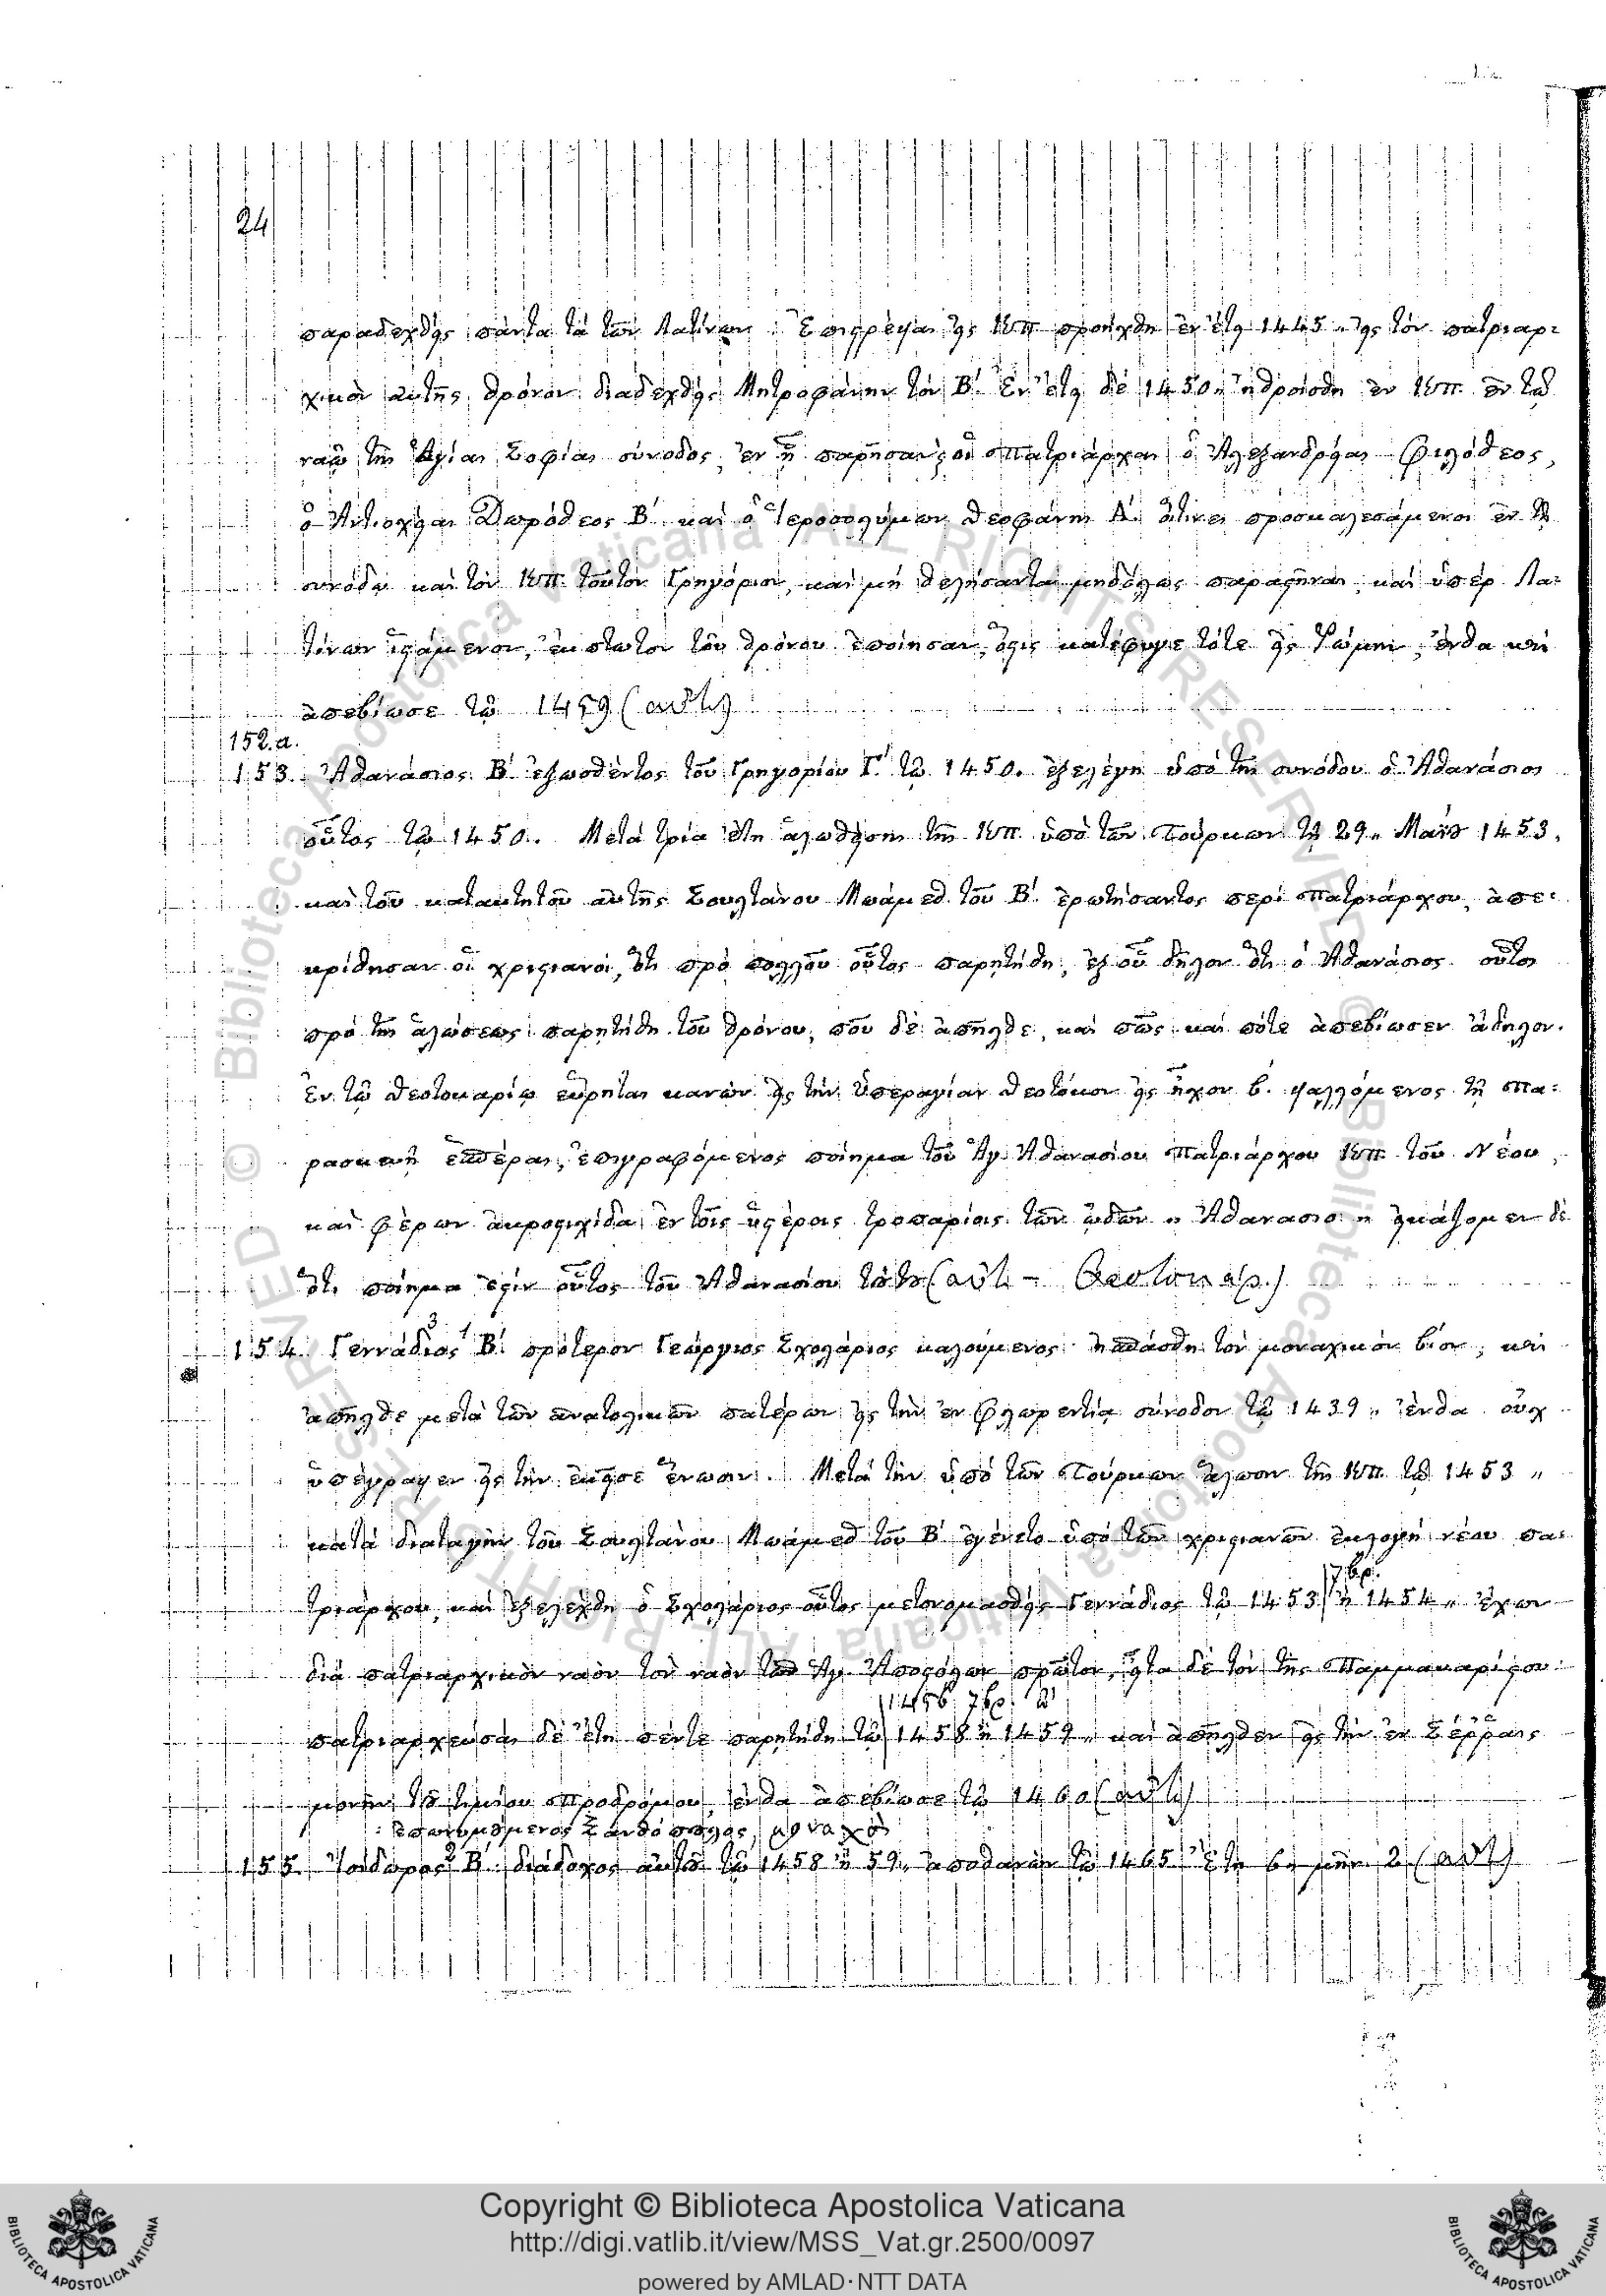 24
παραδεχθεὶς πάντα τὰ τῶν Λατίνων. Ἐπιστρέψας εἰς Κωπ προήχθη ἐν ἔτει 1445 „ εἰς τὸν πατριαρ-
χικὸν αὐτῆς θρόνον διαδεχθεὶς Μητροφάνην τὸν Β΄. Ἐν ἔτει δὲ 1450 „ ἠθροίσθη ἐν Κωπ. ἐν τῷ
ναῷ τῆς Ἁγίας Σοφίας σύνοδος, ἐν ᾗ παρῆσαν οἱ Πατριάρχαι ὁ Ἀλεξανδρείας Φιλόθεος,
ὁ Ἀντιοχείας Δωρόθεος Β΄ καὶ ὁ Ἱεροσολύμων Θεοφάνης Α΄. οἵτινες προσκαλεσάμενοι ἐν τῇ
συνόδῳ καὶ τὸν Κωπ. τοῦτον Γρηγόριον, καὶ μὴ θελήσαντα μηδόλως παραστῆναι, καὶ ὑπὲρ Λα-
τίνων ἱστάμενον, ἔκπτωτον τοῦ θρόνου ἐποίησαν, ὅστις κατέφυγε τότε εἰς Ῥώμην, ἔνθα καὶ
ἀπεβίωσε τῷ 1459 (αὐτ)
152.α.
153. Ἀθανάσιος Β΄ ἐξωσθέντος τοῦ Γρηγορίου Γ΄. τῷ 1450. ἐξελέγη ὑπὸ τῆς συνόδου ὁ Ἀθανάσιος
οὗτος τῷ 1450. Μετὰ τρία ἔτη ἁλωθείσης τῆς Κωπ. ὑπὸ τῶν Τούρκων τῇ 29 „ Μαΐου 1453,
καὶ τοῦ κατακτητοῦ αὐτῆς Σουλτάνου Μωάμεδ τοῦ Β΄. ἐρωτήσαντος περὶ Πατριάρχου, ἀπε-
κρίθησαν οἱ χριστιανοί, ὅτι πρὸ πολλοῦ οὗτος παρῃτήθη, ἐξ οὗ δῆλον ὅτι ὁ Ἀθανάσιος οὗτος
πρὸ τῆς ἁλώσεως παρῃτήθη τοῦ θρόνου, ποῦ δὲ ἀπῆλθε, καὶ πῶς καὶ πότε ἀπεβίωσεν ἄδηλον.
Ἐν τῷ Θεοτοκαρίῳ εὕρηται κανὼν εἰς τὴν Ὑπεραγίαν Θεοτόκον εἰς ἦχον β. ψαλλόμενος τῇ Πα-
ρασκευῇ ἑσπέρας, ἐπιγραφόμενος ποίημα τοῦ Ἁγ. Ἀθανασίου Πατριάρχου Κωπ. τοῦ Νέου,
καὶ φέρων ἀκροστιχίδα ἐν τοῖς ὑστέροις τροπαρίοις τῶν ᾠδῶν „ Ἀθανασιο „ εἰκάζομεν δὲ
ὅτι ποίημά ἐστιν οὗτος τοῦ Ἀθανασίου τούτου (αὐτ – Θεοτοκαρ.)
154. Γεννάδιος Β΄. πρότερον Γεώργιος Σχολάριος καλούμενος ἠσπάσθη τὸν μοναχικὸν βίον, καὶ
ἀπῆλθε μετὰ τῶν ἀνατολικῶν πατέρων εἰς τὴν ἐν Φλωρεντίᾳ σύνοδον τῷ 1439 „ ἔνθα οὐχ
ὑπέγραψεν εἰς τὴν ἐκεῖσε ἕνωσιν. Μετὰ τὴν ὑπὸ τῶν Τούρκων ἅλωσιν τῆς Κωπ. τῷ 1453 „
κατὰ διαταγὴν τοῦ Σουλτάνου Μωάμεδ τοῦ Β΄ ἐγένετο ὑπὸ τῶν χριστιανῶν ἐκλογὴ νέου πα-
τριάρχου, καὶ ἐξελέχθη ὁ Σχολάριος οὗτος μετονομασθεὶς Γεννάδιος τῷ 1453 7βρ. ἢ 1454 „ ἔχων
διὰ πατριαρχικὸν ναὸν τὸν ναὸν τῶν Ἁγ. Ἀποστόλων πρῶτον, εἶτα δὲ τὸν τῆς Παμμακαρίστου.
1456 7βρ.
πατριαρχεύσας δὲ ἔτη πέντε παρῃτήθη τῷ 1458 ἢ 1459 „ καὶ ἀπῆλθεν εἰς τὴν ἐν Σέρραις
μονὴν τοῦ τιμίου Προδρόμου, ἔνθα ἀπεβίωσε τῷ 1460 (αὐτ)
ἐπονομαζόμενος Ξανθόπουλος, μοναχὸς
155. Ἰσίδωρος Β΄. διάδοχος αὐτοῦ τῷ 1458 ἢ 59 „ ἀποθανὼν τῷ 1465 ἔτη 6 „ μῆν. 2 (αὐτ)
Copyright © Biblioteca Apostolica Vaticana
http://digi.vatlib.it/view/MSS_Vat.gr.2500/0097
powered by AMLAD·NTT DATA